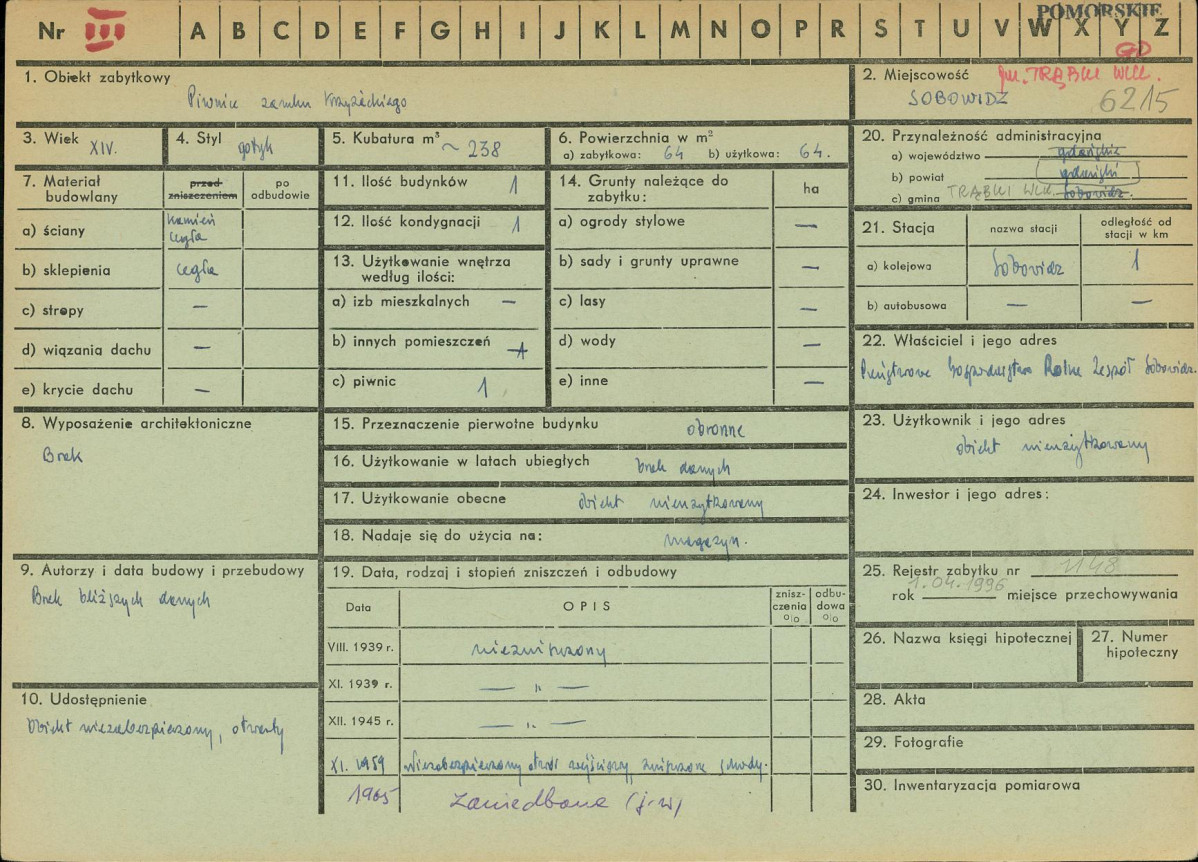 POMORSKIE
Nr III A B C D E F G H I J K L M N O P R S T U V W X Y Z
GD
1. Obiekt zabytkowy
Piwnice zamku Krzyżackiego
2. Miejscowość gm. TRĄBKI WLK.
SOBOWIDZ 6215
3. Wiek XIV.
4. Styl gotyk
5. Kubatura m³ ~ 238
6. Powierzchnia w m²
a) zabytkowa: 64 b) użytkowa: 64.
20. Przynależność administracyjna
a) województwo gdańskie
b) powiat gdański
c) gmina TRĄBKI WLK. Sobowidz
7. Materiał budowlany
przed zniszczeniem
po odbudowie
a) ściany kamień cegła
b) sklepienia cegła
c) stropy —
d) wiązania dachu —
e) krycie dachu —
11. Ilość budynków 1
12. Ilość kondygnacji 1
13. Użytkowanie wnętrza według ilości:
a) izb mieszkalnych —
b) innych pomieszczeń 1
c) piwnic 1
14. Grunty należące do zabytku: ha
a) ogrody stylowe —
b) sady i grunty uprawne —
c) lasy —
d) wody —
e) inne —
21. Stacja
nazwa stacji
odległość od stacji w km
a) kolejowa Sobowidz 1
b) autobusowa — —
22. Właściciel i jego adres
Państwowe Gospodarstwo Rolne Zespół Sobowidz.
8. Wyposażenie architektoniczne
Brak
15. Przeznaczenie pierwotne budynku obronne
16. Użytkowanie w latach ubiegłych brak danych
17. Użytkowanie obecne obiekt nieużytkowany
18. Nadaje się do użycia na: magazyn.
23. Użytkownik i jego adres
obiekt nieużytkowany
24. Inwestor i jego adres:
9. Autorzy i data budowy i przebudowy
Brak bliższych danych
19. Data, rodzaj i stopień zniszczeń i odbudowy
Data OPIS znisz-czenia o|o odbu-dowa o|o
VIII. 1939 r. niezniszczony
XI. 1939 r. — " —
XII. 1945 r. — " —
XI. 1959 Niezabezpieczony otwór wejściowy, zniszczone schody.
1965 Zaniedbane (j.w)
10. Udostępnienie
Obiekt niezabezpieczony, otwarty
25. Rejestr zabytku nr 1148
rok 1.04.1996 miejsce przechowywania
26. Nazwa księgi hipotecznej
27. Numer hipoteczny
28. Akta
29. Fotografie
30. Inwentaryzacja pomiarowa